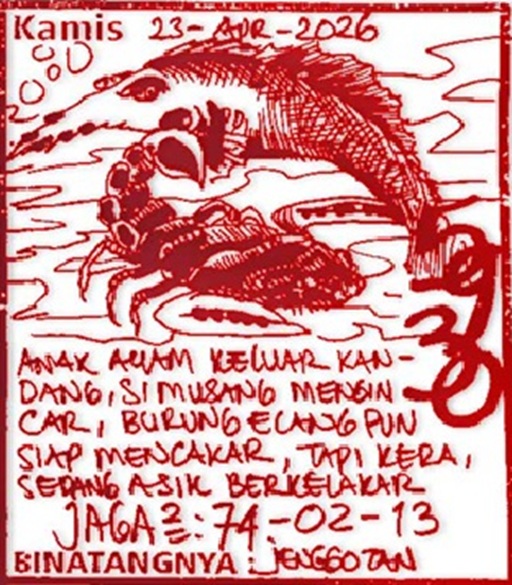 Kamis 23-APR-2026
ANAK AYAM KELUAR KAN-
DANG, SI MUSANG MENGIN
CAR, BURUNG ELANG PUN
SIAP MENCAKAR, TAPI KERA,
SEDANG ASIK BERKELAKAR
JAGA2=: 74-02-13
BINATANGNYA : JENGGOTAN